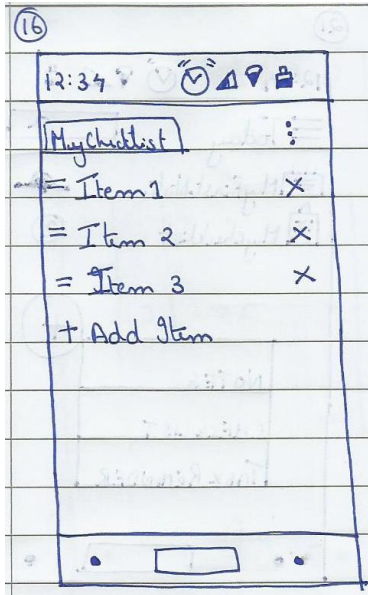 16
12:34
MyChecklist
= Item 1 ×
= Item 2 ×
= Item 3 ×
+ Add Item